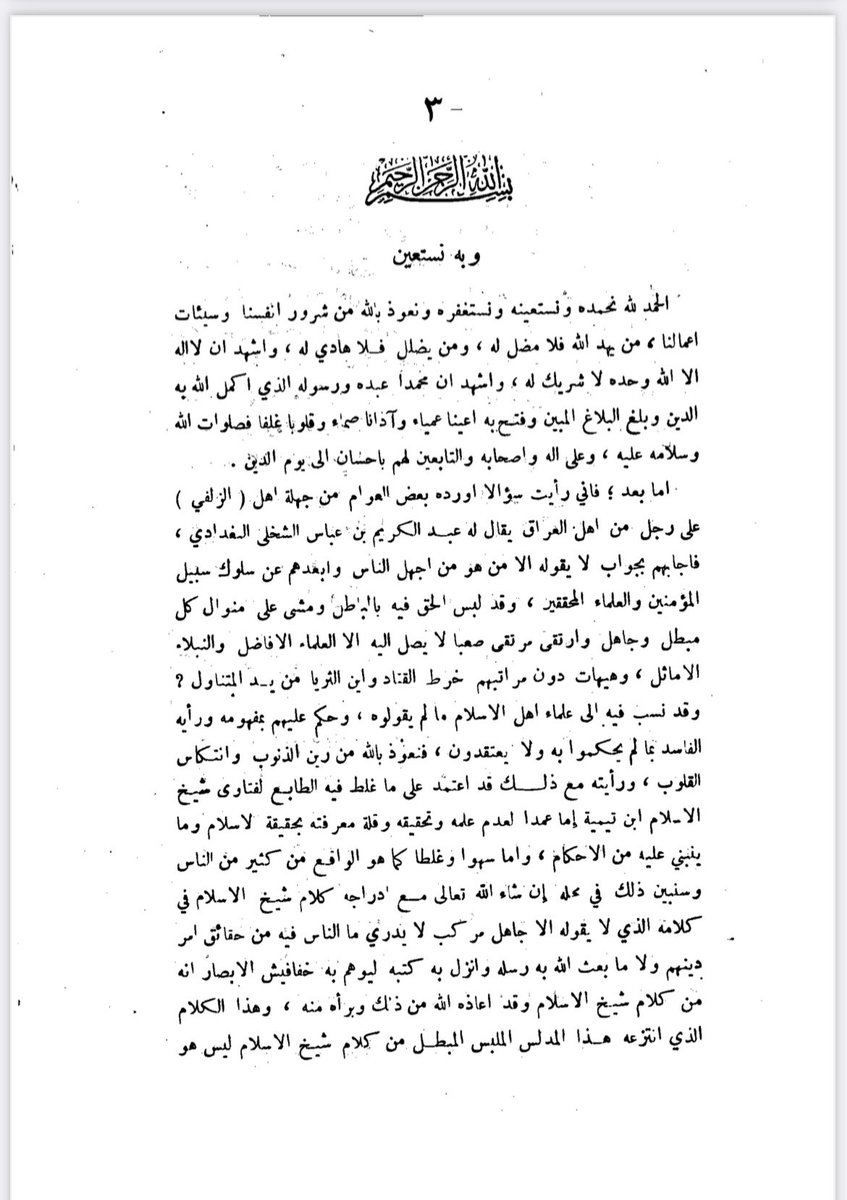 ٣ –
بسم الله الرحمن الرحيم
وبه نستعين
الحمد لله نحمده ونستعينه ونستغفره ونعوذ بالله من شرور انفسنا وسيئات
اعمالنا ، من يهد الله فلا مضل له ، ومن يضلل فلا هادي له ، واشهد ان لااله
الا الله وحده لا شريك له ، واشهد ان محمدا عبده ورسوله الذي اكمل الله به
الدين وبلغ البلاغ المبين وفتح به اعينا عمياء وآذانا صماء وقلوبا غلفا فصلوات الله
وسلامه عليه ، وعلى اله واصحابه والتابعين لهم باحسان الى يوم الدين .
اما بعد ؛ فاني رأيت سؤالا اورده بعض العوام من جهلة اهل ( الزلفي )
على رجل من اهل العراق يقال له عبد الكريم بن عباس الشخلى البغدادي ،
فاجابهم بجواب لا يقوله الا من هو من اجهل الناس وابعدهم عن سلوك سبيل
المؤمنين والعلماء المحققين ، وقد لبس الحق فيه بالباطل ومشى على منوال كل
مبطل وجاهل وارتقى مرتقى صعبا لا يصل اليه الا العلماء الافاضل والنبلاء
الاماثل ، وهيهات دون مراتبهم خرط القتاد واين الثريا من يد المتناول ?
وقد نسب فيه الى علماء اهل الاسلام ما لم يقولوه ، وحكم عليهم بمفهومه ورأيه
الفاسد بما لم يحكموا به ولا يعتقدون ، فنعوذ بالله من رين الذنوب وانتكاس
القلوب ، ورأيته مع ذلك قد اعتمد على ما غلط فيه الطابع لفتاوى شيخ
الاسلام ابن تيمية إما عمدا لعدم علمه وتحقيقه وقلة معرفته بحقيقة لاسلام وما
ينبني عليه من الاحكام ، واما سهوا وغلطا كما هو الواقع من كثير من الناس
وسنبين ذلك في محله إن شاء الله تعالى مع ادراجه كلام شيخ الاسلام في
كلامه الذي لا يقوله الا جاهل مركب لا يدري ما الناس فيه من حقائق امر
دينهم ولا ما بعث الله به رسله وانزل به كتبه ليوهم به خفافيش الابصار انه
من كلام شيخ الاسلام وقد اعاذه الله من ذلك وبرأه منه ، وهذا الكلام
الذي انتزعه هذا المدلس الملبس المبطل من كلام شيخ الاسلام ليس هو